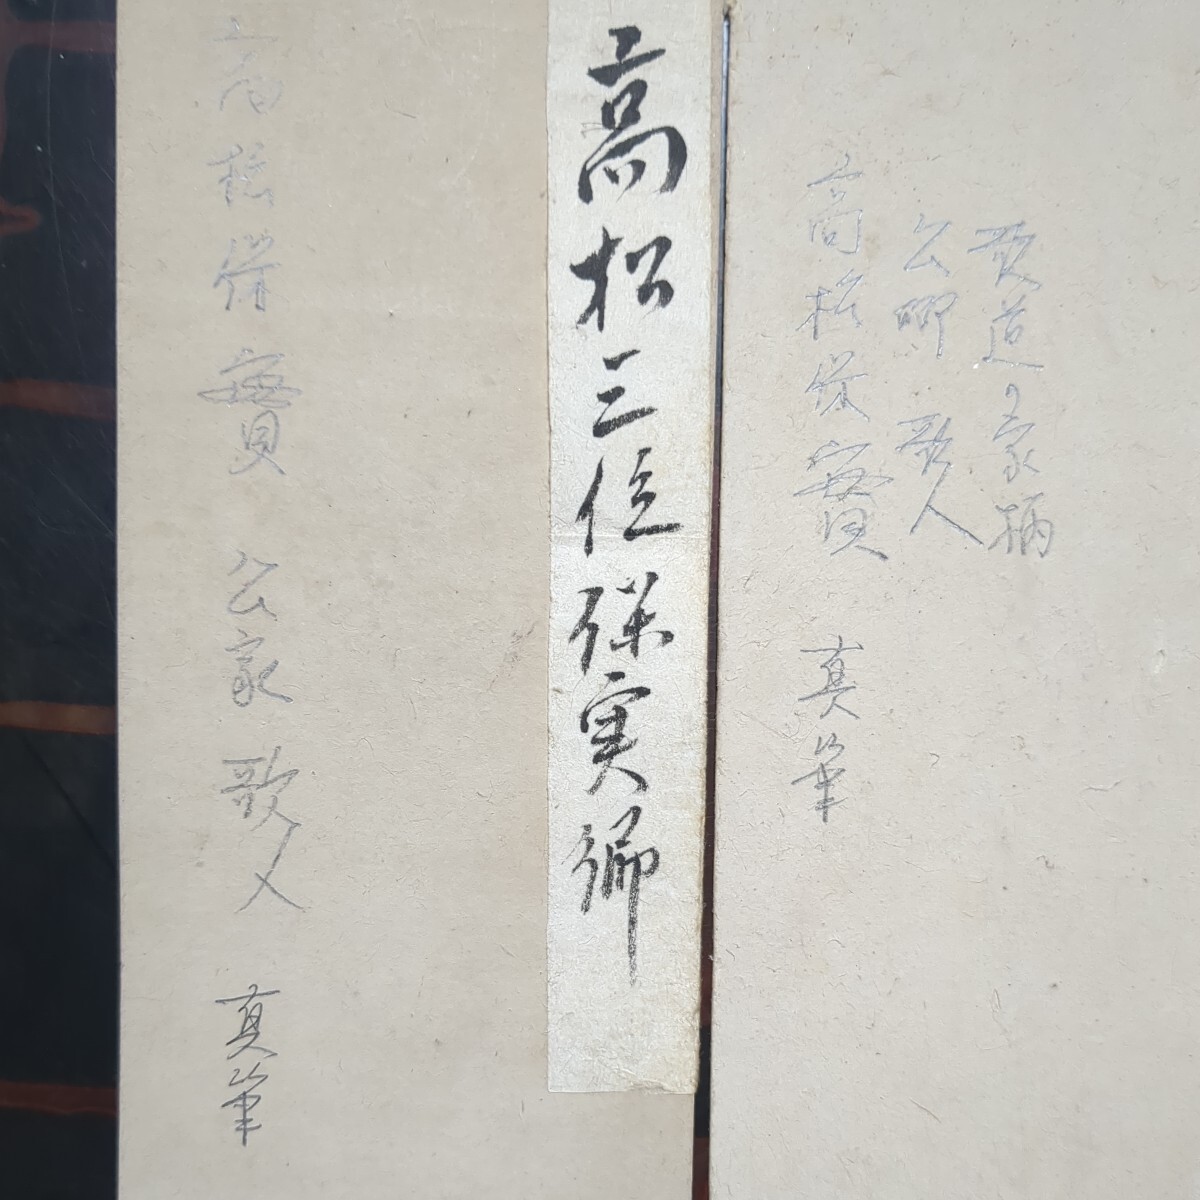 歌道ノ家柄
公卿 歌人
高松保實 真筆
高松三位保実卿
高松保實 公家 歌人 真筆